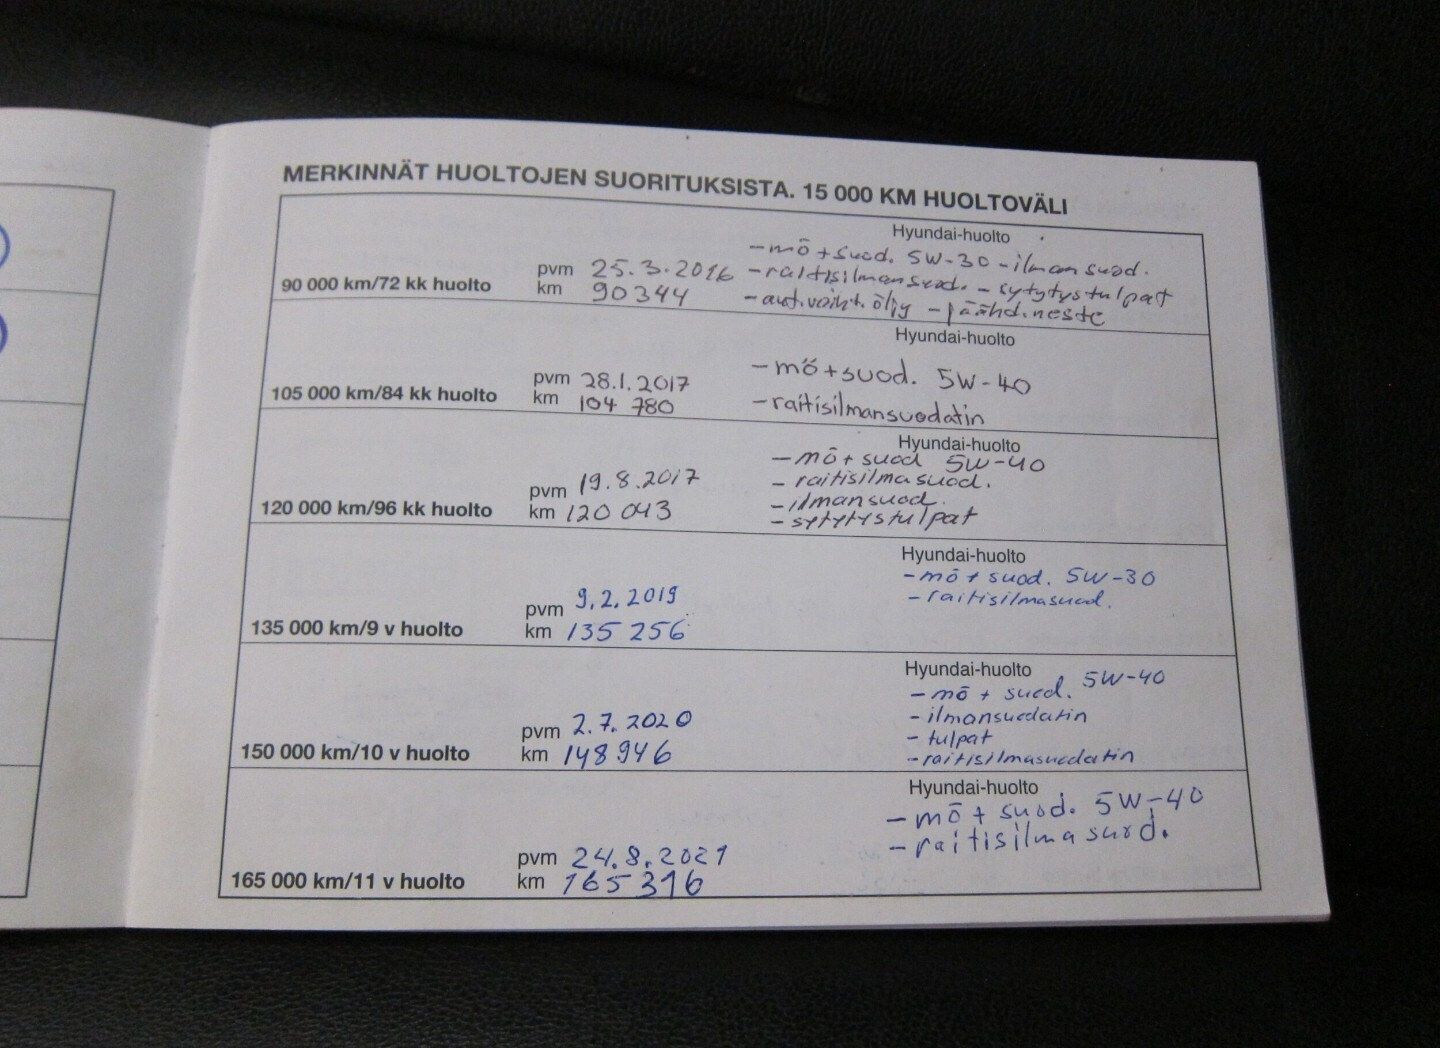 MERKINNÄT HUOLTOJEN SUORITUKSISTA. 15 000 KM HUOLTOVÄLI
Hyundai-huolto
90 000 km/72 kk huolto
pvm 25.3.2016
km 90344
-mö+suod. 5W-30 -ilmansuod.
-raitisilmansuod. -sytytystulpat
-aut.vaiht.öljy -jäähd.neste
Hyundai-huolto
105 000 km/84 kk huolto
pvm 28.1.2017
km 104 780
-mö+suod. 5W-40
-raitisilmansuodatin
Hyundai-huolto
120 000 km/96 kk huolto
pvm 19.8.2017
km 120 043
-mö+suod 5W-40
-raitisilmasuod.
-ilmansuod.
-sytytystulpat
Hyundai-huolto
135 000 km/9 v huolto
pvm 9.2.2019
km 135 256
-mö+suod. 5W-30
-raitisilmasuod.
Hyundai-huolto
150 000 km/10 v huolto
pvm 2.7.2020
km 148946
-mö + suod. 5W-40
-ilmansuodatin
-tulpat
-raitisilmasuodatin
Hyundai-huolto
165 000 km/11 v huolto
pvm 24.8.2021
km 165316
-mö+ suod. 5W-40
-raitisilmasuod.